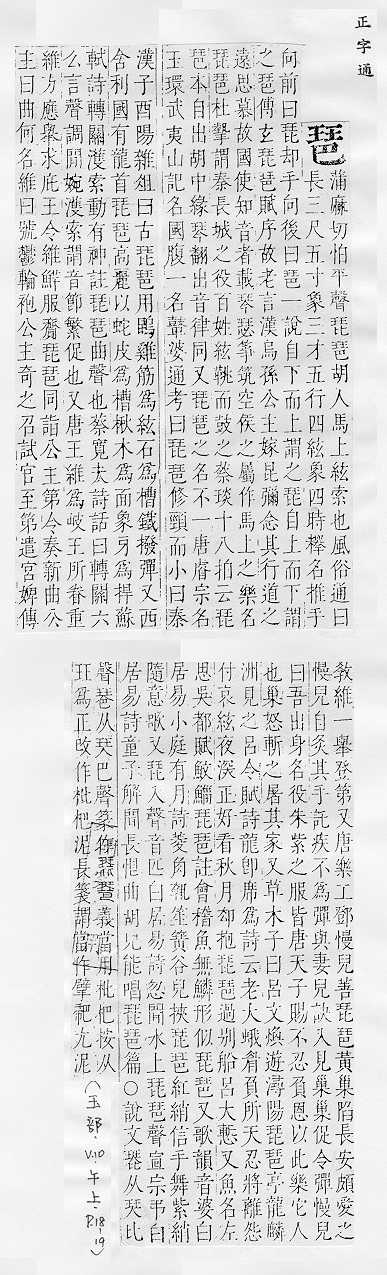 正字通
琶
蒲麻切怕平聲琵琶胡人馬上絃索也風俗通曰
長三尺五寸象三才五行四絃象四時名推手
向前曰琵却手向後曰琶一說自下而上謂之琵自上而下謂
之琶傅玄琵琶賦序故老言漢烏孫公主嫁昆彌念其行道之
遠思慕故國使知音者載琴瑟箏筑空侯之屬作馬上之樂名
琵琶杜摯謂秦長城之役百姓絃鞉而鼓之蔡琰十八拍云琵
琶本自出胡中緣琴翻出音律同又琵琶之名不一唐睿宗名
玉環武夷山記名國腹一名鼙婆通考曰琵琶修頸而小曰秦
漢子酉陽雜俎曰古琵琶用鵾雞筋爲絃石爲槽鐵撥彈又西
舍利國有龍首琵琶高麗以蛇皮爲槽楸木爲面象牙爲捍蘇
軾詩轉關濩索動有神註琵琶曲聲也蔡寬夫詩話曰轉關六
么言聲調閒婉濩索謂音節繁促也又唐王維爲岐王所眷重
維方應舉求庇王令維鮮服齎琵琶同詣公主第令奏新曲公
主曰曲何名維曰號鬱輪袍公主奇之召試官至第遣宮婢傳
教維一舉登第又唐樂工鄧慢兒善琵琶黃巢陷長安頗愛之
慢兒自灸其手託疾不爲彈與妻兒訣入見巢巢促令彈慢兒
曰吾出身名役朱紫之服皆唐天子賜不忍負恩以此樂它人
也巢怒斬之屠其家又草木子曰呂文煥遊潯陽琵琶亭龍麟
洲見之呂令賦詩龍卽席爲詩云老大蛾眉負所天忍將離怨
付哀絃夜深正好看秋月却抱琵琶過別船呂大慙又魚名左
思吳都賦鮫鯔琵琶註會稽魚無鱗形似琵琶又歌韻音婆白
居易小庭有月詩菱角執笙簧谷兒抹琵琶紅綃信手舞紫綃
隨意歌又琵入聲音匹白居易詩忽聞水上琵琶聲宣宗弔白
居易詩童子解吟長恨曲胡兒能唱琵琶篇○說文琵从珡比
聲琶从珡巴聲篆作義當用枇杷按从
玨爲正改作枇杷泥長箋謂當作擘尤泥
(玉部、V.10 午上、P.18、19)